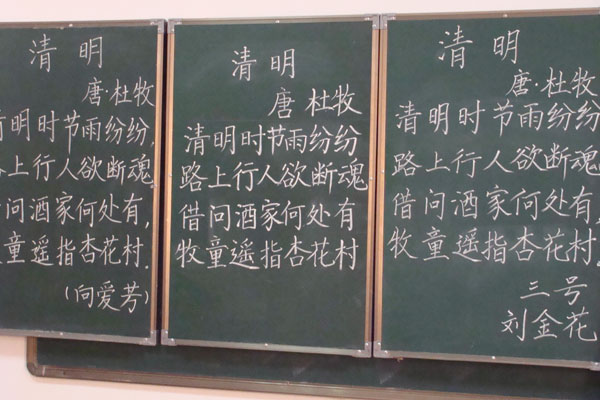 清明
唐·杜牧
清明时节雨纷纷,
路上行人欲断魂
借问酒家何处有,
童遥指杏花村.
(向爱芳)
清明
唐 杜牧
清明时节雨纷纷
路上行人欲断魂
借问酒家何处有
牧童遥指杏花村
清明
唐·杜牧
清明时节雨纷纷
路上行人欲断魂
借问酒家何处有,
牧童遥指杏花村.
三号
刘金花